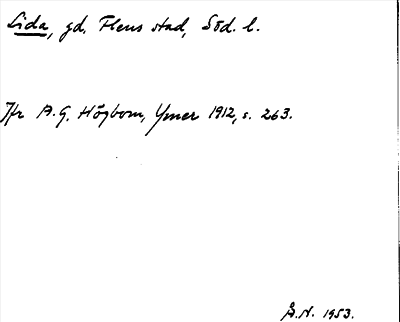 Lida, gd, Flens stad, Söd. l.
Jfr A.G. Högbom, Ymer 1912, s. 263.
Å.N. 1953.